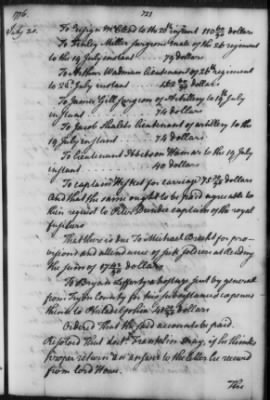 1776. 721
July 20.
To Ensign McDonald to the 20th instant 110 dollars
To Finley Miller surgeons mate of the 26 regiment
to the 19 July instant 79 dollars
To Arthur Wadman lieutenant of 26th regiment
to 26th July instant dollars
To James Gill surgeon of Artillery to 19th July
instant 74 dollars
To Jacob Shalch lieutenant of artillery to the
19 July instant 74 dollars
To lieutenant Ibbetson Hamar to the 19 July
instant 40 dollars
To captain Hesket for carriage 75 dollars
And that the same ought to be paid agreeable to
their request to Peter Dundee captain of the royal
fuziliers
That there is due To Michael Bright for pro-
visions and allowance of sick soldiers at Reading
the sum of 17 dollars
To Bryan Lefferty a hostage sent by general
from Tryon County for two subsistance expences
thence to Philadelphia 42 dollars
Ordered That the said accounts be paid.
Resolved That doctr Franklin may, if he thinks
proper return an answer to the letter he received
from lord Howe.
The